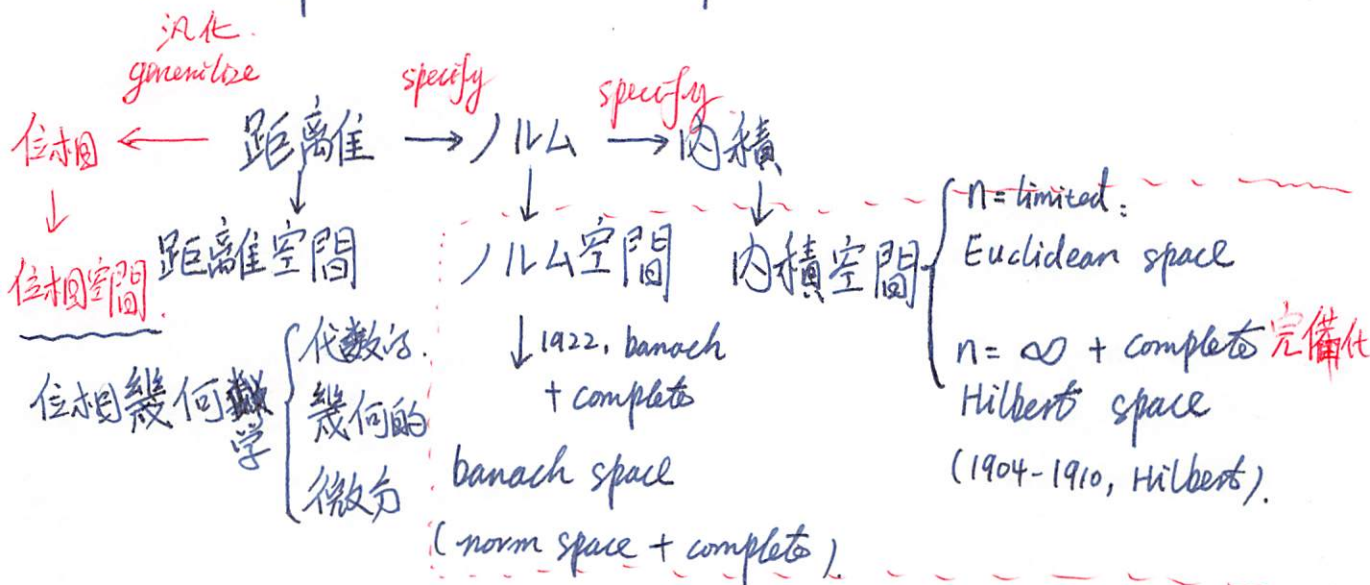 汎化.
generilize
specify
specify
位相 ← 距離 → ノルム → 内積
位相空間.
距離空間
ノルム空間
内積空間
n=limited:
Euclidean space
n=∞ + complete 完備化
Hilbert space
(1904-1910, Hilbert).
↓1922, banach
+ complete
banach space
(norm space + complete)
位相幾何学
代数的.
幾何的
微分